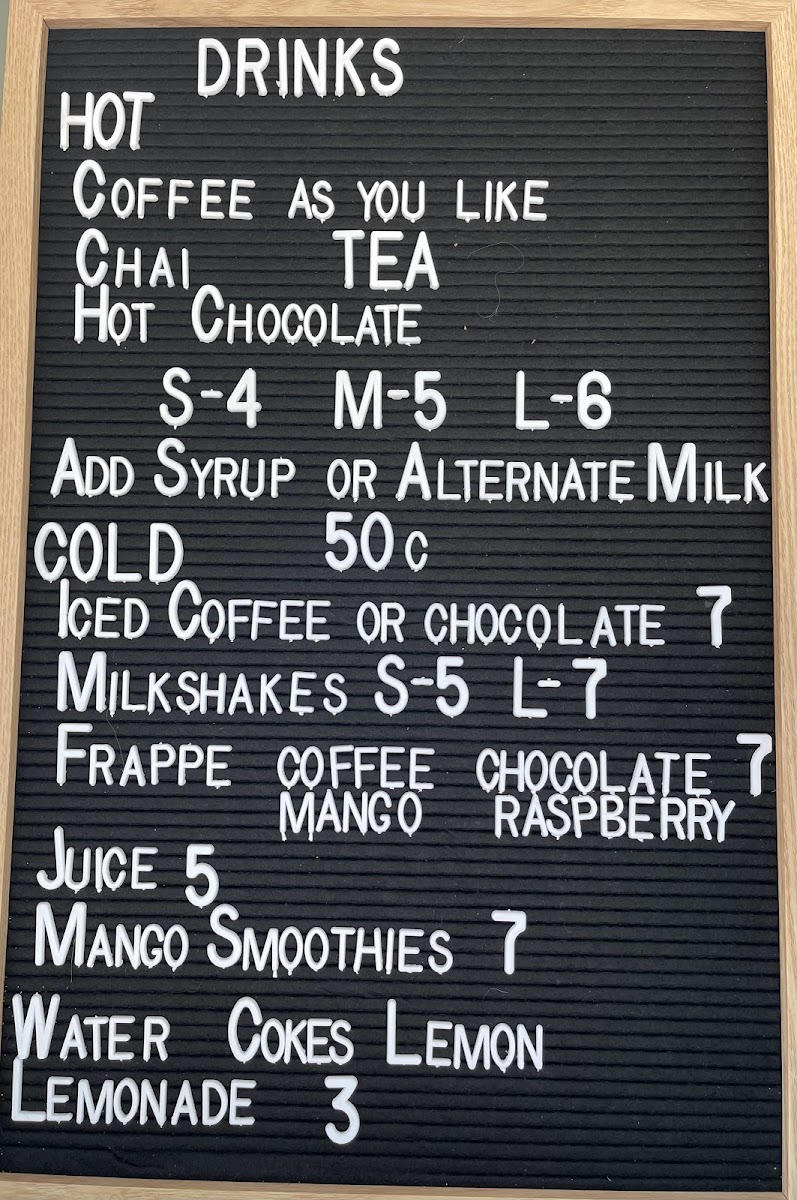 DRINKS
HOT
COFFEE AS YOU LIKE
CHAI TEA
HOT CHOCOLATE
S-4 M-5 L-6
ADD SYRUP OR ALTERNATE MILK
COLD 50C
ICED COFFEE OR CHOCOLATE 7
MILKSHAKES S-5 L-7
FRAPPE COFFEE CHOCOLATE 7
MANGO RASPBERRY
JUICE 5
MANGO SMOOTHIES 7
WATER COKES LEMON
LEMONADE 3